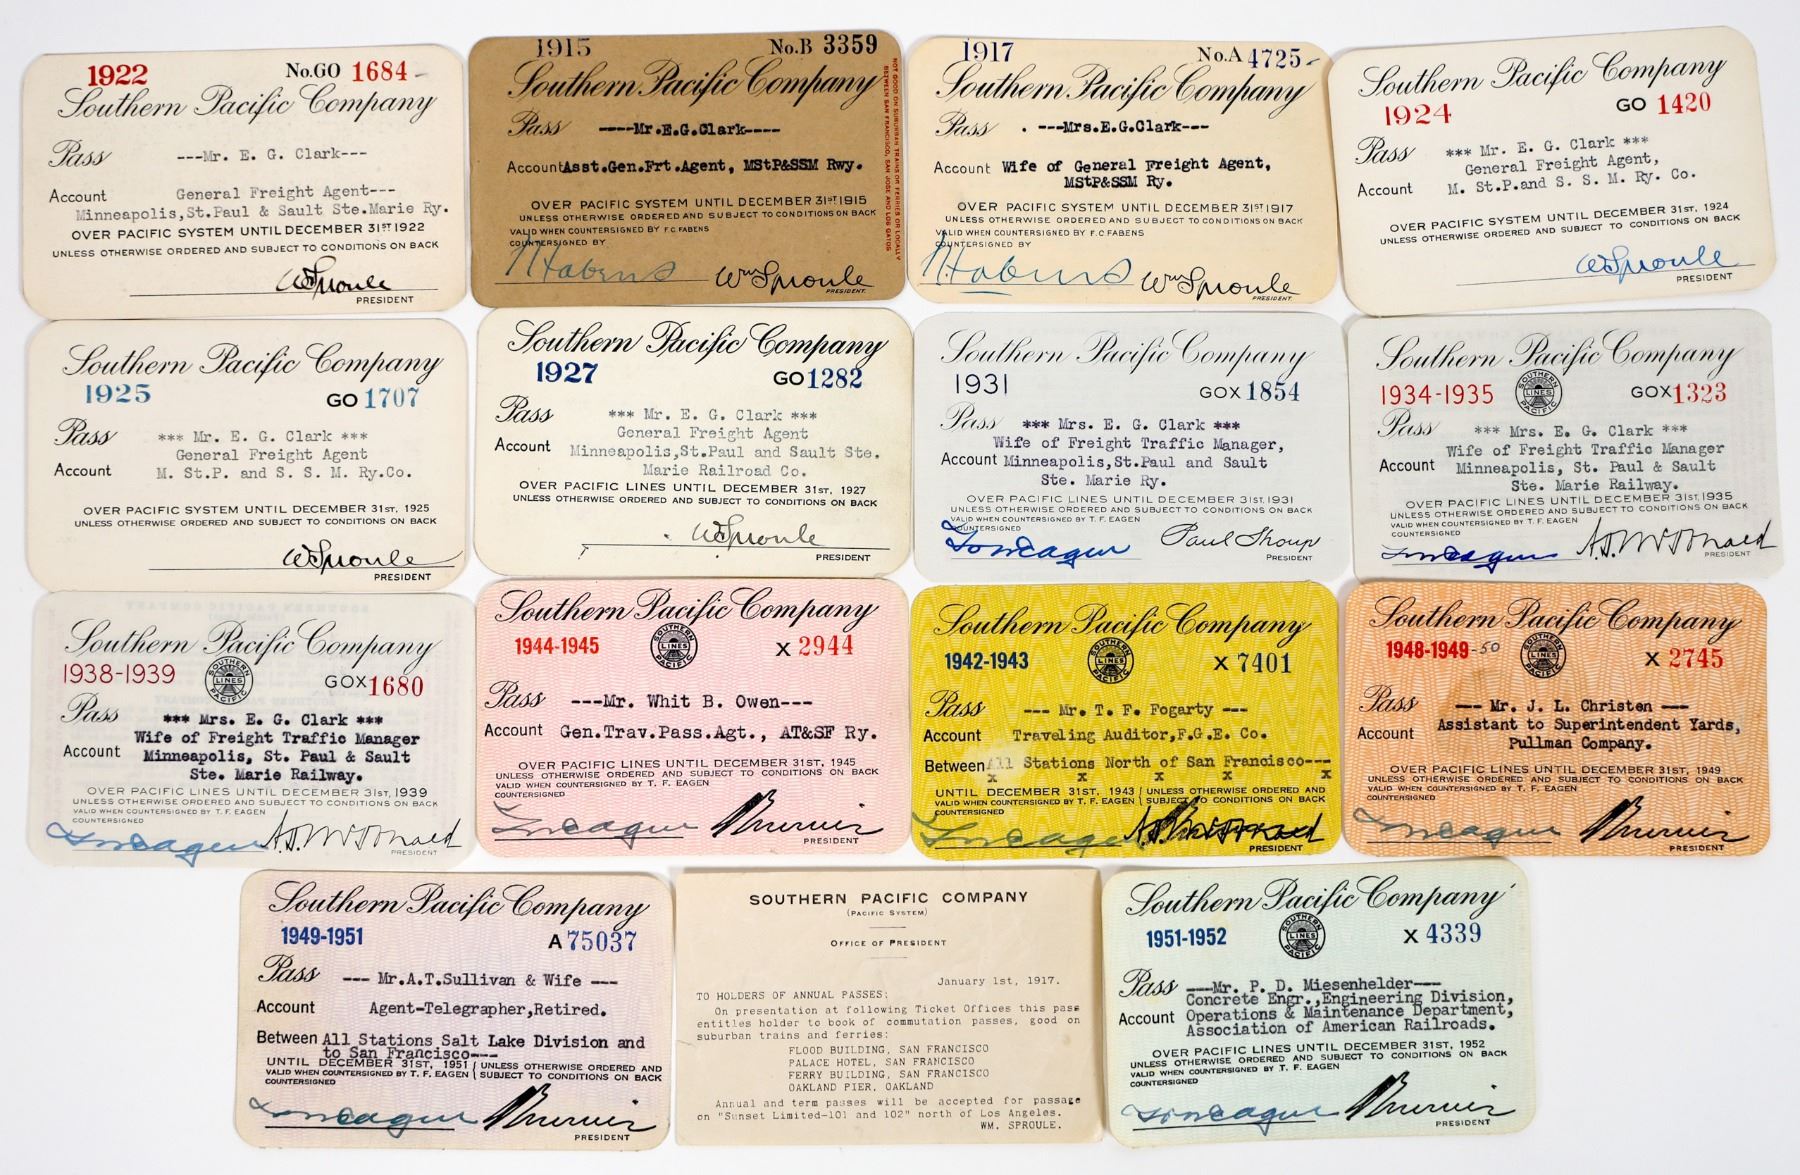 1922 No.GO 1684
Southern Pacific Company
Pass ---Mr. E. G. Clark---
Account General Freight Agent---
Minneapolis,St.Paul & Sault Ste.Marie Ry.
OVER PACIFIC SYSTEM UNTIL DECEMBER 31ST 1922
UNLESS OTHERWISE ORDERED AND SUBJECT TO CONDITIONS ON BACK
Wm Sproule
PRESIDENT
1915 No.B 3359
Southern Pacific Company
Pass ----Mr.E.G.Clark----
Account Asst.Gen.Frt.Agent, MStP&SSM Rwy.
OVER PACIFIC SYSTEM UNTIL DECEMBER 31ST 1915
UNLESS OTHERWISE ORDERED AND SUBJECT TO CONDITIONS ON BACK
VALID WHEN COUNTERSIGNED BY F.C. FABENS
COUNTERSIGNED BY
Wm Sproule
PRESIDENT.
NOT GOOD ON SUBURBAN TRAINS OR FERRIES OR LOCALLY
BETWEEN SAN FRANCISCO, SAN JOSE AND LOS GATOS
1917 No.A 4725
Southern Pacific Company
Pass . ---Mrs.E.G.Clark---
Account Wife of General Freight Agent,
MStP&SSM Ry.
OVER PACIFIC SYSTEM UNTIL DECEMBER 31ST 1917
UNLESS OTHERWISE ORDERED AND SUBJECT TO CONDITIONS ON BACK
VALID WHEN COUNTERSIGNED BY F.C FABENS
COUNTERSIGNED BY
Wm Sproule
PRESIDENT.
Southern Pacific Company
1924 GO 1420
Pass *** Mr. E. G. Clark ***
General Freight Agent,
Account M. St.P.and S. S. M. Ry. Co.
OVER PACIFIC SYSTEM UNTIL DECEMBER 31ST, 1924
UNLESS OTHERWISE ORDERED AND SUBJECT TO CONDITIONS ON BACK
Wm Sproule
PRESIDENT
Southern Pacific Company
1925 GO 1707
Pass *** Mr. E. G. Clark ***
General Freight Agent
Account M. St.P. and S. S. M. Ry.Co.
OVER PACIFIC SYSTEM UNTIL DECEMBER 31ST, 1925
UNLESS OTHERWISE ORDERED AND SUBJECT TO CONDITIONS ON BACK
Wm Sproule
PRESIDENT
Southern Pacific Company
1927 GO 1282
Pass *** Mr. E. G. Clark ***
General Freight Agent
Account Minneapolis,St.Paul and Sault Ste.
Marie Railroad Co.
OVER PACIFIC LINES UNTIL DECEMBER 31ST, 1927
UNLESS OTHERWISE ORDERED AND SUBJECT TO CONDITIONS ON BACK
Wm Sproule
PRESIDENT
Southern Pacific Company
1931 GOX 1854
Pass *** Mrs. E. G. Clark ***
Wife of Freight Traffic Manager,
Account Minneapolis,St.Paul and Sault
Ste. Marie Ry.
OVER PACIFIC LINES UNTIL DECEMBER 31ST, 1931
UNLESS OTHERWISE ORDERED AND SUBJECT TO CONDITIONS ON BACK
VALID WHEN COUNTERSIGNED BY T. F. EAGEN
COUNTERSIGNED
Paul Shoup
PRESIDENT
Southern Pacific Company
1934-1935 SOUTHERN LINES PACIFIC GOX 1323
Pass *** Mrs. E. G. Clark ***
Wife of Freight Traffic Manager
Account Minneapolis, St. Paul & Sault
Ste. Marie Railway.
OVER PACIFIC LINES UNTIL DECEMBER 31ST, 1935
UNLESS OTHERWISE ORDERED AND SUBJECT TO CONDITIONS ON BACK
VALID WHEN COUNTERSIGNED BY T. F. EAGEN
COUNTERSIGNED
A.D. McDonald
PRESIDENT
Southern Pacific Company
1938-1939 SOUTHERN LINES PACIFIC GOX 1680
Pass *** Mrs. E. G. Clark ***
Wife of Freight Traffic Manager
Account Minneapolis, St. Paul & Sault
Ste. Marie Railway.
OVER PACIFIC LINES UNTIL DECEMBER 31ST, 1939
UNLESS OTHERWISE ORDERED AND SUBJECT TO CONDITIONS ON BACK
VALID WHEN COUNTERSIGNED BY T. F. EAGEN
COUNTERSIGNED
A.D. McDonald
PRESIDENT
Southern Pacific Company
1944-1945 SOUTHERN LINES PACIFIC X 2944
Pass ---Mr. Whit B. Owen---
Account Gen.Trav.Pass.Agt., AT&SF Ry.
OVER PACIFIC LINES UNTIL DECEMBER 31ST, 1945
UNLESS OTHERWISE ORDERED AND SUBJECT TO CONDITIONS ON BACK
VALID WHEN COUNTERSIGNED BY T. F. EAGEN
COUNTERSIGNED
PRESIDENT
Southern Pacific Company
1942-1943 SOUTHERN LINES PACIFIC X 7401
Pass --- Mr. T. F. Fogarty ---
Account Traveling Auditor,F.G.E. Co.
Between All Stations North of San Francisco---
x x x x x
UNTIL DECEMBER 31ST, 1943 UNLESS OTHERWISE ORDERED AND
VALID WHEN COUNTERSIGNED BY T. F. EAGEN SUBJECT TO CONDITIONS ON BACK
COUNTERSIGNED
PRESIDENT
Southern Pacific Company
1948-1949 -50 SOUTHERN LINES PACIFIC X 2745
Pass --- Mr. J. L. Christen ---
Assistant to Superintendent Yards,
Account Pullman Company.
OVER PACIFIC LINES UNTIL DECEMBER 31ST, 1949
UNLESS OTHERWISE ORDERED AND SUBJECT TO CONDITIONS ON BACK
VALID WHEN COUNTERSIGNED BY T. F. EAGEN
COUNTERSIGNED
PRESIDENT
Southern Pacific Company
1949-1951 A 75037
Pass --- Mr.A.T.Sullivan & Wife ---
Account Agent-Telegrapher,Retired.
Between All Stations Salt Lake Division and
to San Francisco---
UNTIL DECEMBER 31ST, 1951 UNLESS OTHERWISE ORDERED AND
VALID WHEN COUNTERSIGNED BY T. F. EAGEN SUBJECT TO CONDITIONS ON BACK
COUNTERSIGNED
PRESIDENT
SOUTHERN PACIFIC COMPANY
(PACIFIC SYSTEM)
OFFICE OF PRESIDENT
January 1st, 1917.
TO HOLDERS OF ANNUAL PASSES:
On presentation at following Ticket Offices this pass
entitles holder to book of commutation passes, good on
suburban trains and ferries:
FLOOD BUILDING, SAN FRANCISCO
PALACE HOTEL, SAN FRANCISCO
FERRY BUILDING, SAN FRANCISCO
OAKLAND PIER, OAKLAND
Annual and term passes will be accepted for passage
on "Sunset Limited-101 and 102" north of Los Angeles.
WM. SPROULE.
Southern Pacific Company
1951-1952 SOUTHERN LINES PACIFIC X 4339
Pass ---Mr. P. D. Miesenhelder---
Concrete Engr.,Engineering Division,
Account Operations & Maintenance Department,
Association of American Railroads.
OVER PACIFIC LINES UNTIL DECEMBER 31ST, 1952
UNLESS OTHERWISE ORDERED AND SUBJECT TO CONDITIONS ON BACK
VALID WHEN COUNTERSIGNED BY T. F. EAGEN
COUNTERSIGNED
PRESIDENT